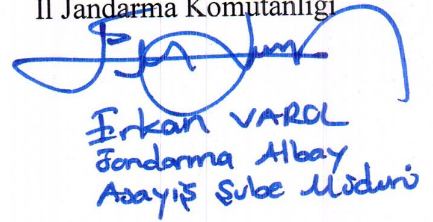 İl Jandarma Komutanlığı
Erkan VAROL
Jandarma Albay
Asayiş Şube Müdürü